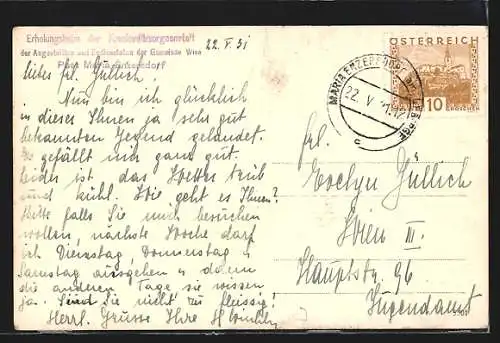 Erholungsheim der Krankenfürsorgeanstalt
der Angestellten und Bediensteten der Gemeinde Wien
Post Maria Enzersdorf
22.V.31
Liebes Frl. Jüllich
Nun bin ich glücklich
in dieses Ihnen ja sehr gut
bekannten Gegend gelandet.
Es gefällt mir ganz gut.
Leider ist das Wetter trüb
und kühl. Wie geht es Ihnen?
Bitte falls Sie mich besuchen
wollen, nächste Woche darf
ich Dienstag, Donnerstag u
Samstag ausgehen u dann
die anderen Tage sie wissen
ja. Sind Sie nicht zu fleissig!
Herzl. Grüsse Ihre H
ÖSTERREICH
10
GROSCHEN
MARIA ENZERSDORF
22. V. 31.12
c
Frl.
Evelyn Jüllich
Wien III.
Hauptstr. 96
Jugendamt